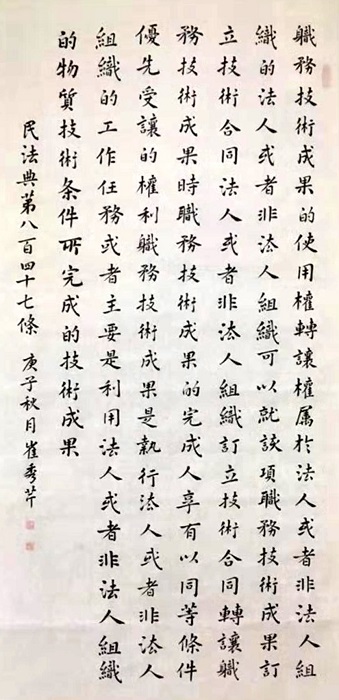 職務技術成果的使用權轉讓權属於法人或者非法人組
織的法人或者非法人組織可以就該項職務技術成果訂
立技術合同法人或者非法人組織訂立技術合同轉讓職
務技術成果時職務技術成果的完成人享有以同等條件
優先受讓的權利職務技術成果是執行法人或者非法人
組織的工作任務或者主要是利用法人或者非法人組織
的物質技術条件所完成的技術成果
民法典第八百四十七條 庚子秋月崔秀芹